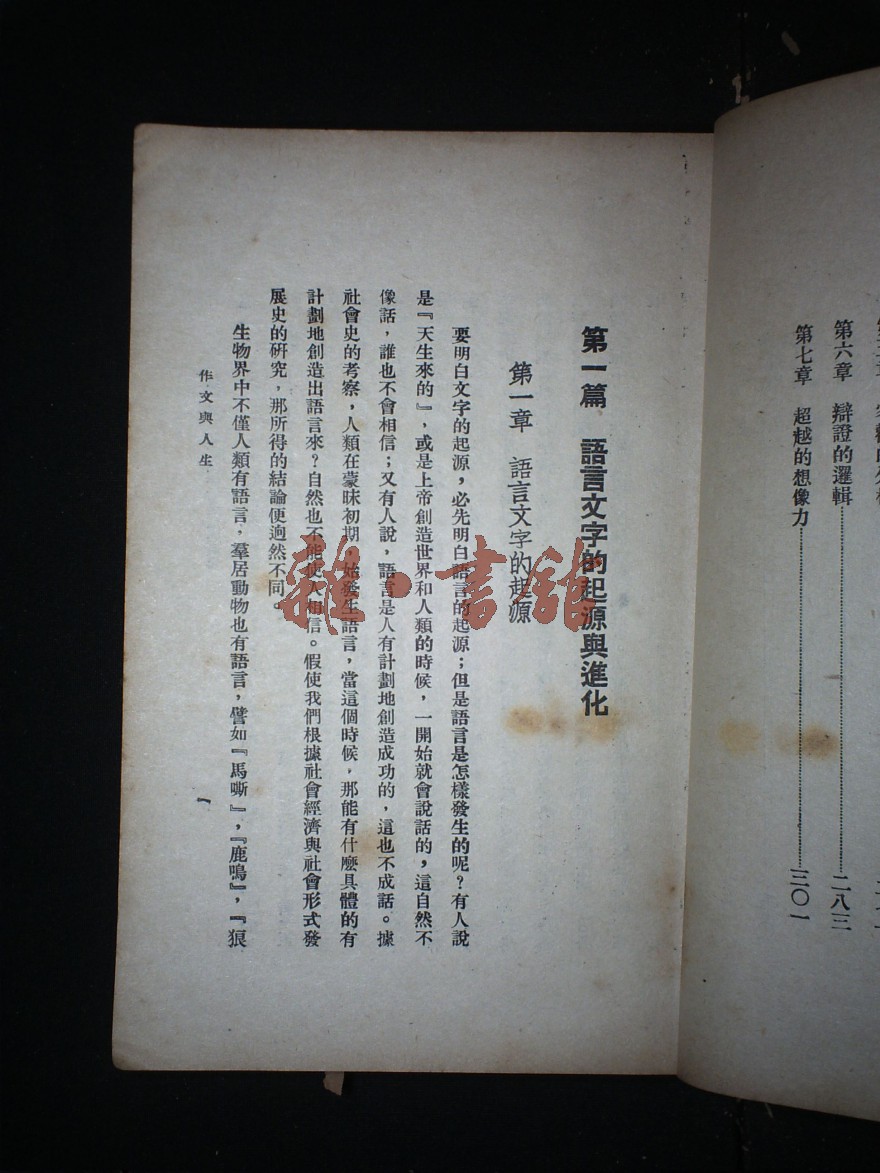 第六章 辯證的邏輯……二八三
第七章 超越的想像力……三〇一
第一篇 語言文字的起源與進化
第一章 語言文字的起源
要明白文字的起源，必先明白語言的起源；但是語言是怎樣發生的呢？有人說
是『天生來的』，或是上帝創造世界和人類的時候，一開始就會說話的，這自然不
像話，誰也不會相信；又有人說，語言是人有計劃地創造成功的，這也不成話。據
社會史的考察，人類在蒙昧初期，始發生語言，當這個時候，那能有什麼具體的有
計劃地創造出語言來？自然也不能使人相信。假使我們根據社會經濟與社會形式發
展史的研究，那所得的結論便逈然不同。
生物界中不僅人類有語言，羣居動物也有語言，譬如『馬嘶』，『鹿鳴』，『狼
作文與人生
一
雜·書館